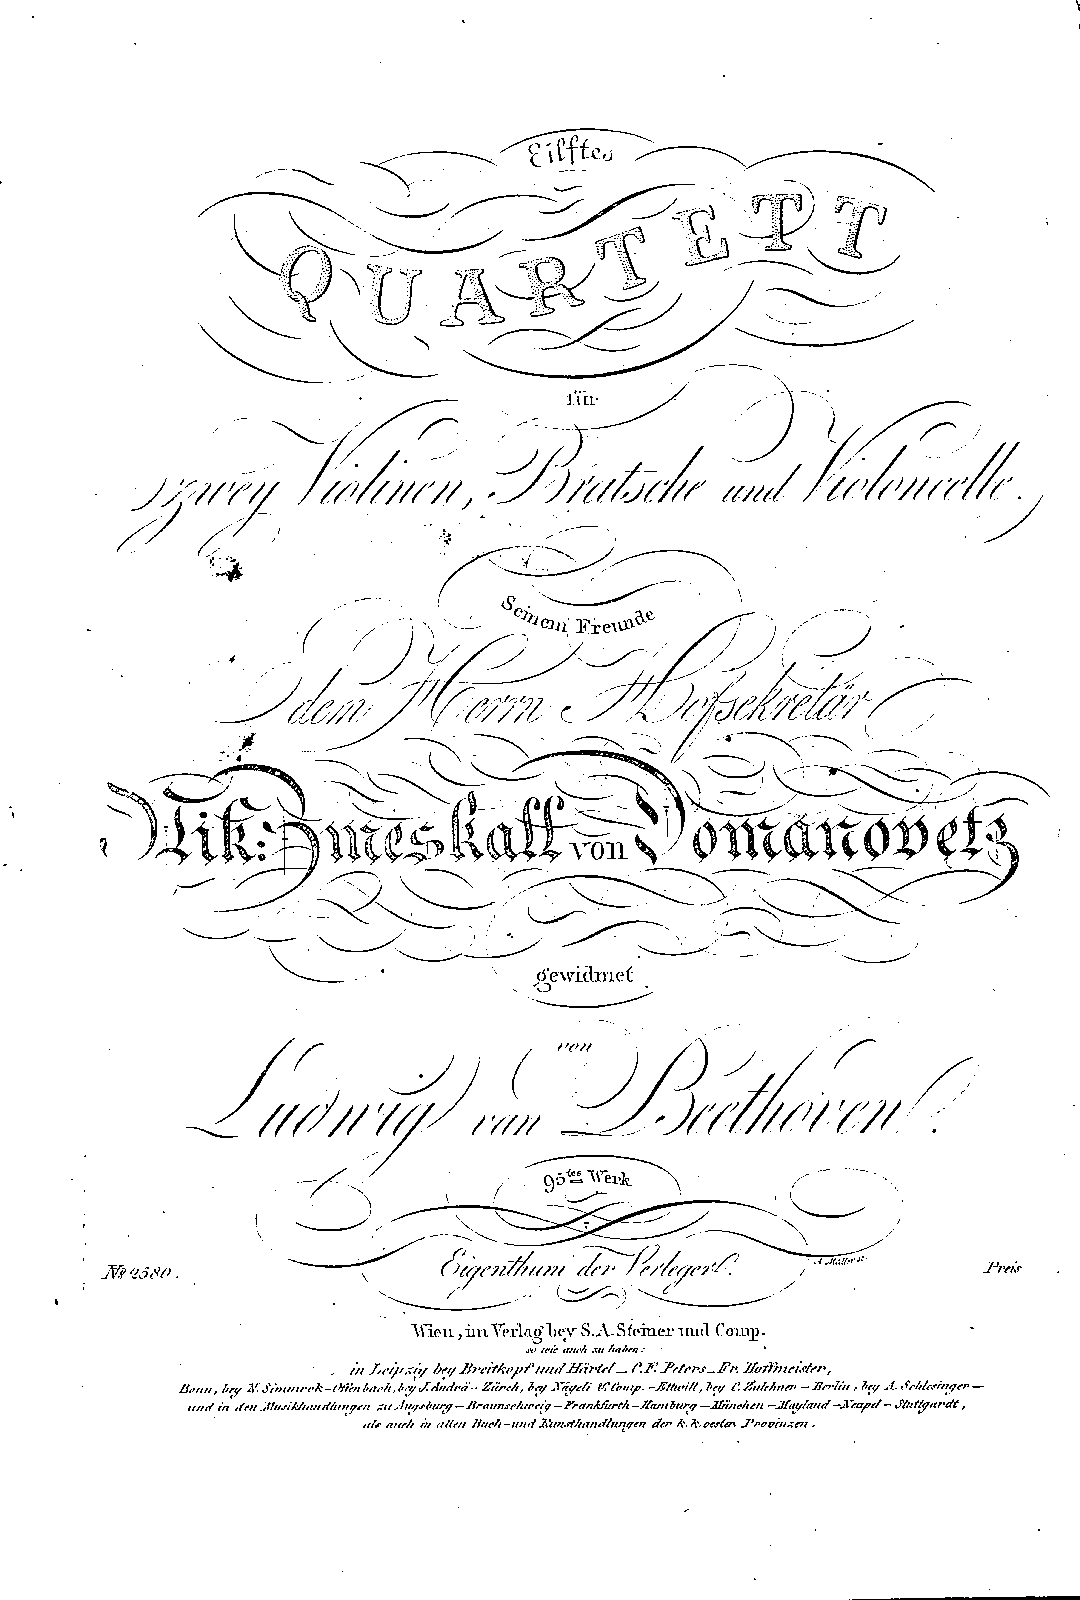 Eilftes
QUARTETT
für
zwey Violinen, Bratsche und Violoncelle.
Seinem Freunde
dem Herrn Hofsekretär
Nik: Zmeskall von Domanovetz
gewidmet
von
Ludwig van Beethoven.
95tes Werk
Eigenthum der Verleger.
No 2580.
Preis
Wien, im Verlag bey S. A. Steiner und Comp.
so wie auch zu haben:
in Leipzig bey Breitkopf und Härtel – C. F. Peters – Fr. Hoffmeister,
Bonn, bey N. Simmrok – Offenbach, bey J. André – Zürch, bey Nägeli & Comp. – Eltwill, bey C. Zulehner – Berlin, bey A. Schlesinger –
und in den Musikhandlungen zu Augsburg – Braunschweig – Frankfurth – Hamburg – München – Mayland – Neapel – Stuttgardt,
als auch in allen Buch- und Kunsthandlungen der k. k. oester. Provinzen.